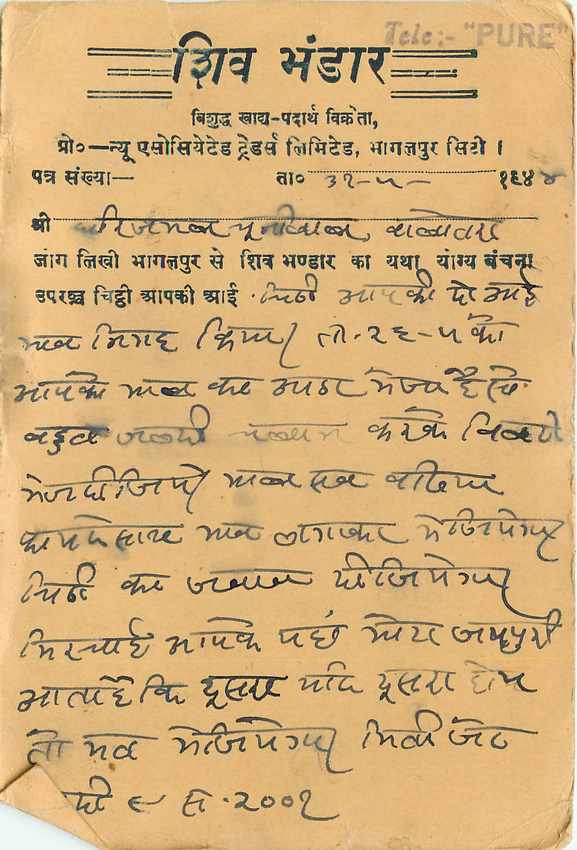 Tele:- "PURE"
शिव भंडार
बिशुद्ध खाद्य-पदार्थ विक्रेता,
प्रो०—न्यू एसोसियेटेड ट्रेडर्स लिमिटेड, भागलपुर सिटी ।
पत्र संख्या— ता० ३१-५- १९४४
श्री
जोग लिखी भागलपुर से शिव भण्डार का यथा योग्य बंचना
उपरञ्च चिट्ठी आपकी आई । चिठी आपकी दो आई
माल निगह किया। ता. २६-५ को
आपको माल का आडर भेजा है सो
बहुत जल्दी करके बिलटी
भेज दीजिये। माल सब बढिया
माल लगाकर भेजियेगा
चिठी का जवाब दीजियेगा
मिरचाई आपके
आता है कि दूसरा यदि दूसरा होय
तो मत भेजियेगा। मिती जेठ
सुदी ९ स. २००१